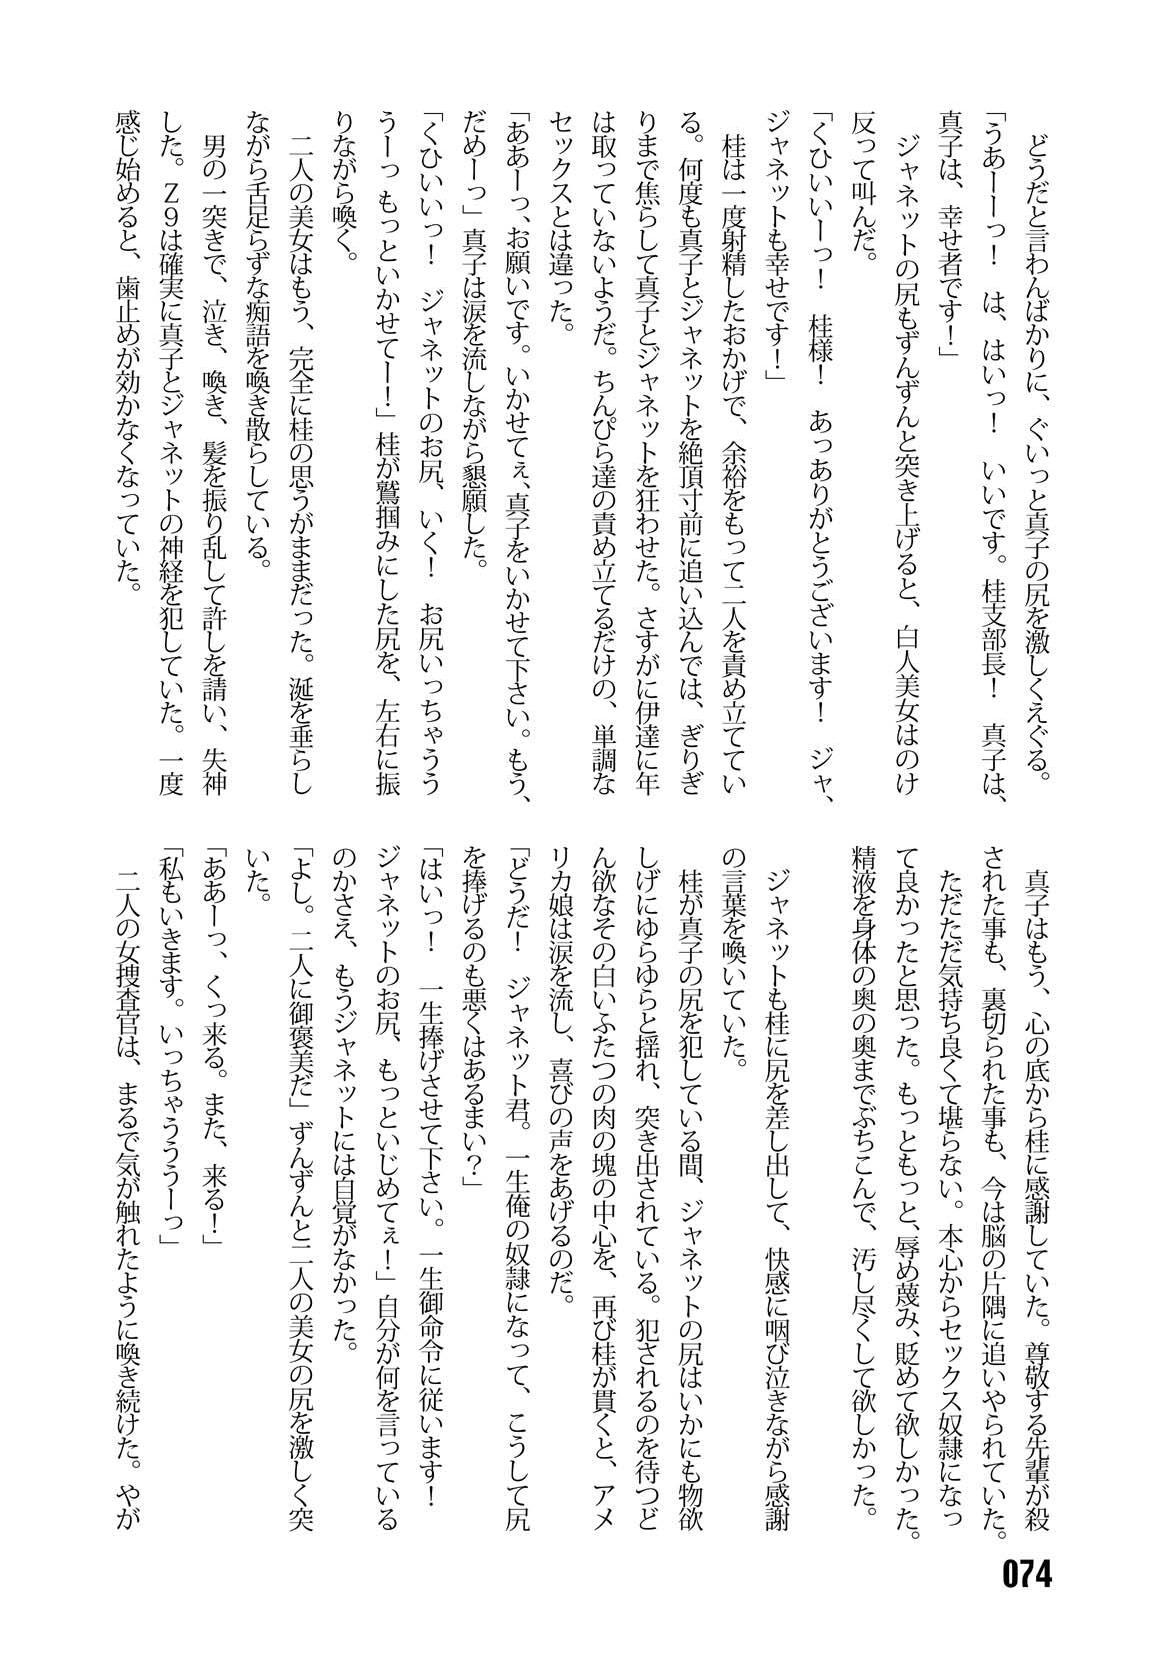 どうだと言わんばかりに、ぐいっと真子の尻を激しくえぐる。
「うあーーっ！　は、はいっ！　いいです。桂支部長！　真子は、
真子は、幸せ者です！」
ジャネットの尻もずんずんと突き上げると、白人美女はのけ
反って叫んだ。
「くひいいーっ！　桂様！　あっありがとうございます！　ジャ、
ジャネットも幸せです！」
桂は一度射精したおかげで、余裕をもって二人を責め立ててい
る。何度も真子とジャネットを絶頂寸前に追い込んでは、ぎりぎ
りまで焦らして真子とジャネットを狂わせた。さすがに伊達に年
は取っていないようだ。ちんぴら達の責め立てるだけの、単調な
セックスとは違った。
「ああーっ、お願いです。いかせてぇ、真子をいかせて下さい。もう、
だめーっ」真子は涙を流しながら懇願した。
「くひいいっ！　ジャネットのお尻、いく！　お尻いっちゃうう
うーっ もっといかせてー！」桂が鷲掴みにした尻を、左右に振
りながら喚く。
二人の美女はもう、完全に桂の思うがままだった。涎を垂らし
ながら舌足らずな痴語を喚き散らしている。
男の一突きで、泣き、喚き、髪を振り乱して許しを請い、失神
した。Ｚ９は確実に真子とジャネットの神経を犯していた。一度
感じ始めると、歯止めが効かなくなっていた。
真子はもう、心の底から桂に感謝していた。尊敬する先輩が殺
された事も、裏切られた事も、今は脳の片隅に追いやられていた。
ただただ気持ち良くて堪らない。本心からセックス奴隷になっ
て良かったと思った。もっともっと、辱め蔑み、貶めて欲しかった。
精液を身体の奥の奥までぶちこんで、汚し尽くして欲しかった。
ジャネットも桂に尻を差し出して、快感に咽び泣きながら感謝
の言葉を喚いていた。
桂が真子の尻を犯している間、ジャネットの尻はいかにも物欲
しげにゆらゆらと揺れ、突き出されている。犯されるのを待つど
ん欲なその白いふたつの肉の塊の中心を、再び桂が貫くと、アメ
リカ娘は涙を流し、喜びの声をあげるのだ。
「どうだ！　ジャネット君。一生俺の奴隷になって、こうして尻
を捧げるのも悪くはあるまい？」
「はいっ！　一生捧げさせて下さい。一生御命令に従います！
ジャネットのお尻、もっといじめてぇ！」自分が何を言っている
のかさえ、もうジャネットには自覚がなかった。
「よし。二人に御褒美だ」ずんずんと二人の美女の尻を激しく突
いた。
「ああーっ、くっ来る。また、来る！」
「私もいきます。いっちゃうううーっ」
二人の女捜査官は、まるで気が触れたように喚き続けた。やが
074